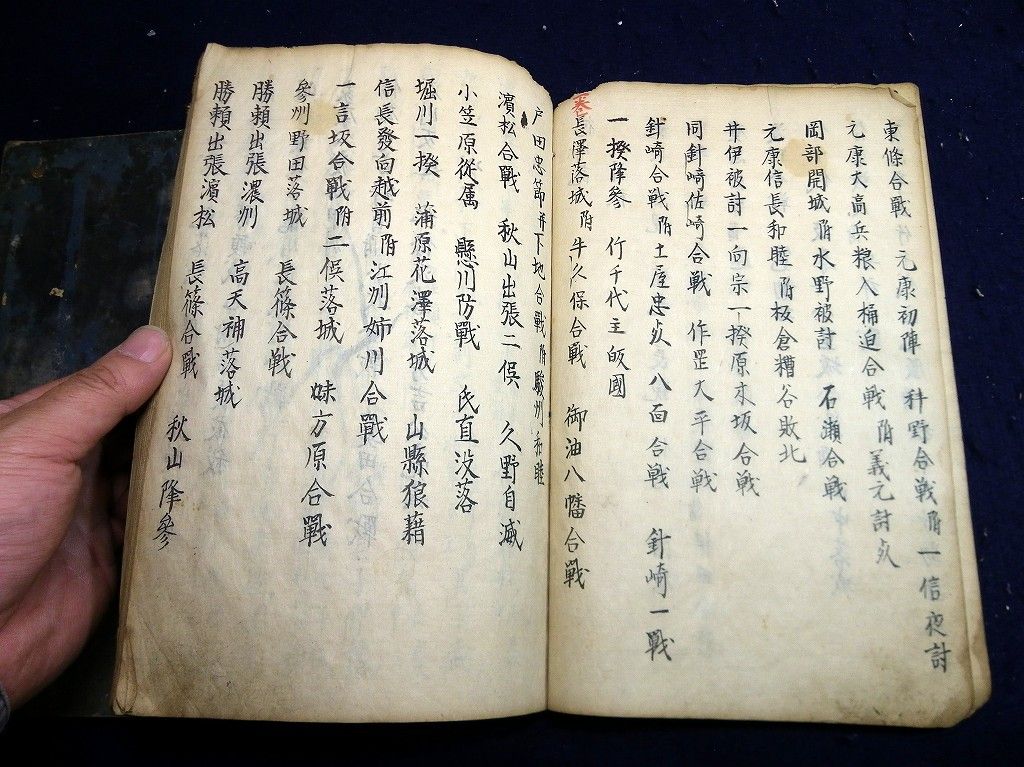 東條合戰幷元康初陣 科野合戦附一信夜討
元康大高兵粮入桶迫合戦附義元討死
岡部開城附水野被討 石瀬合戦
元康信長和睦附板倉糟谷敗北
井伊被討一向宗一揆原木坂合戦
同針崎佐崎合戦 作罡大平合戦
針崎合戦附土屋忠死 八面合戦 針崎一戰
一揆降參 竹千代主皈國
二巻 長澤落城附牛久保合戰 御油八幡合戰
戸田忠節幷下地合戰附駿州和睦
濱松合戰 秋山出張二俣 久野自滅
小笠原從属 懸川防戰 氏直没落
堀川一揆 蒲原花澤落城 山縣狼藉
信長發向越前附江洲姉川合戰
一言坂合戰附二俣落城 味方原合戰
參州野田落城 長篠合戦
勝頼出張濃州 高天神落城
勝頼出張濱松 長篠合戰 秋山降參